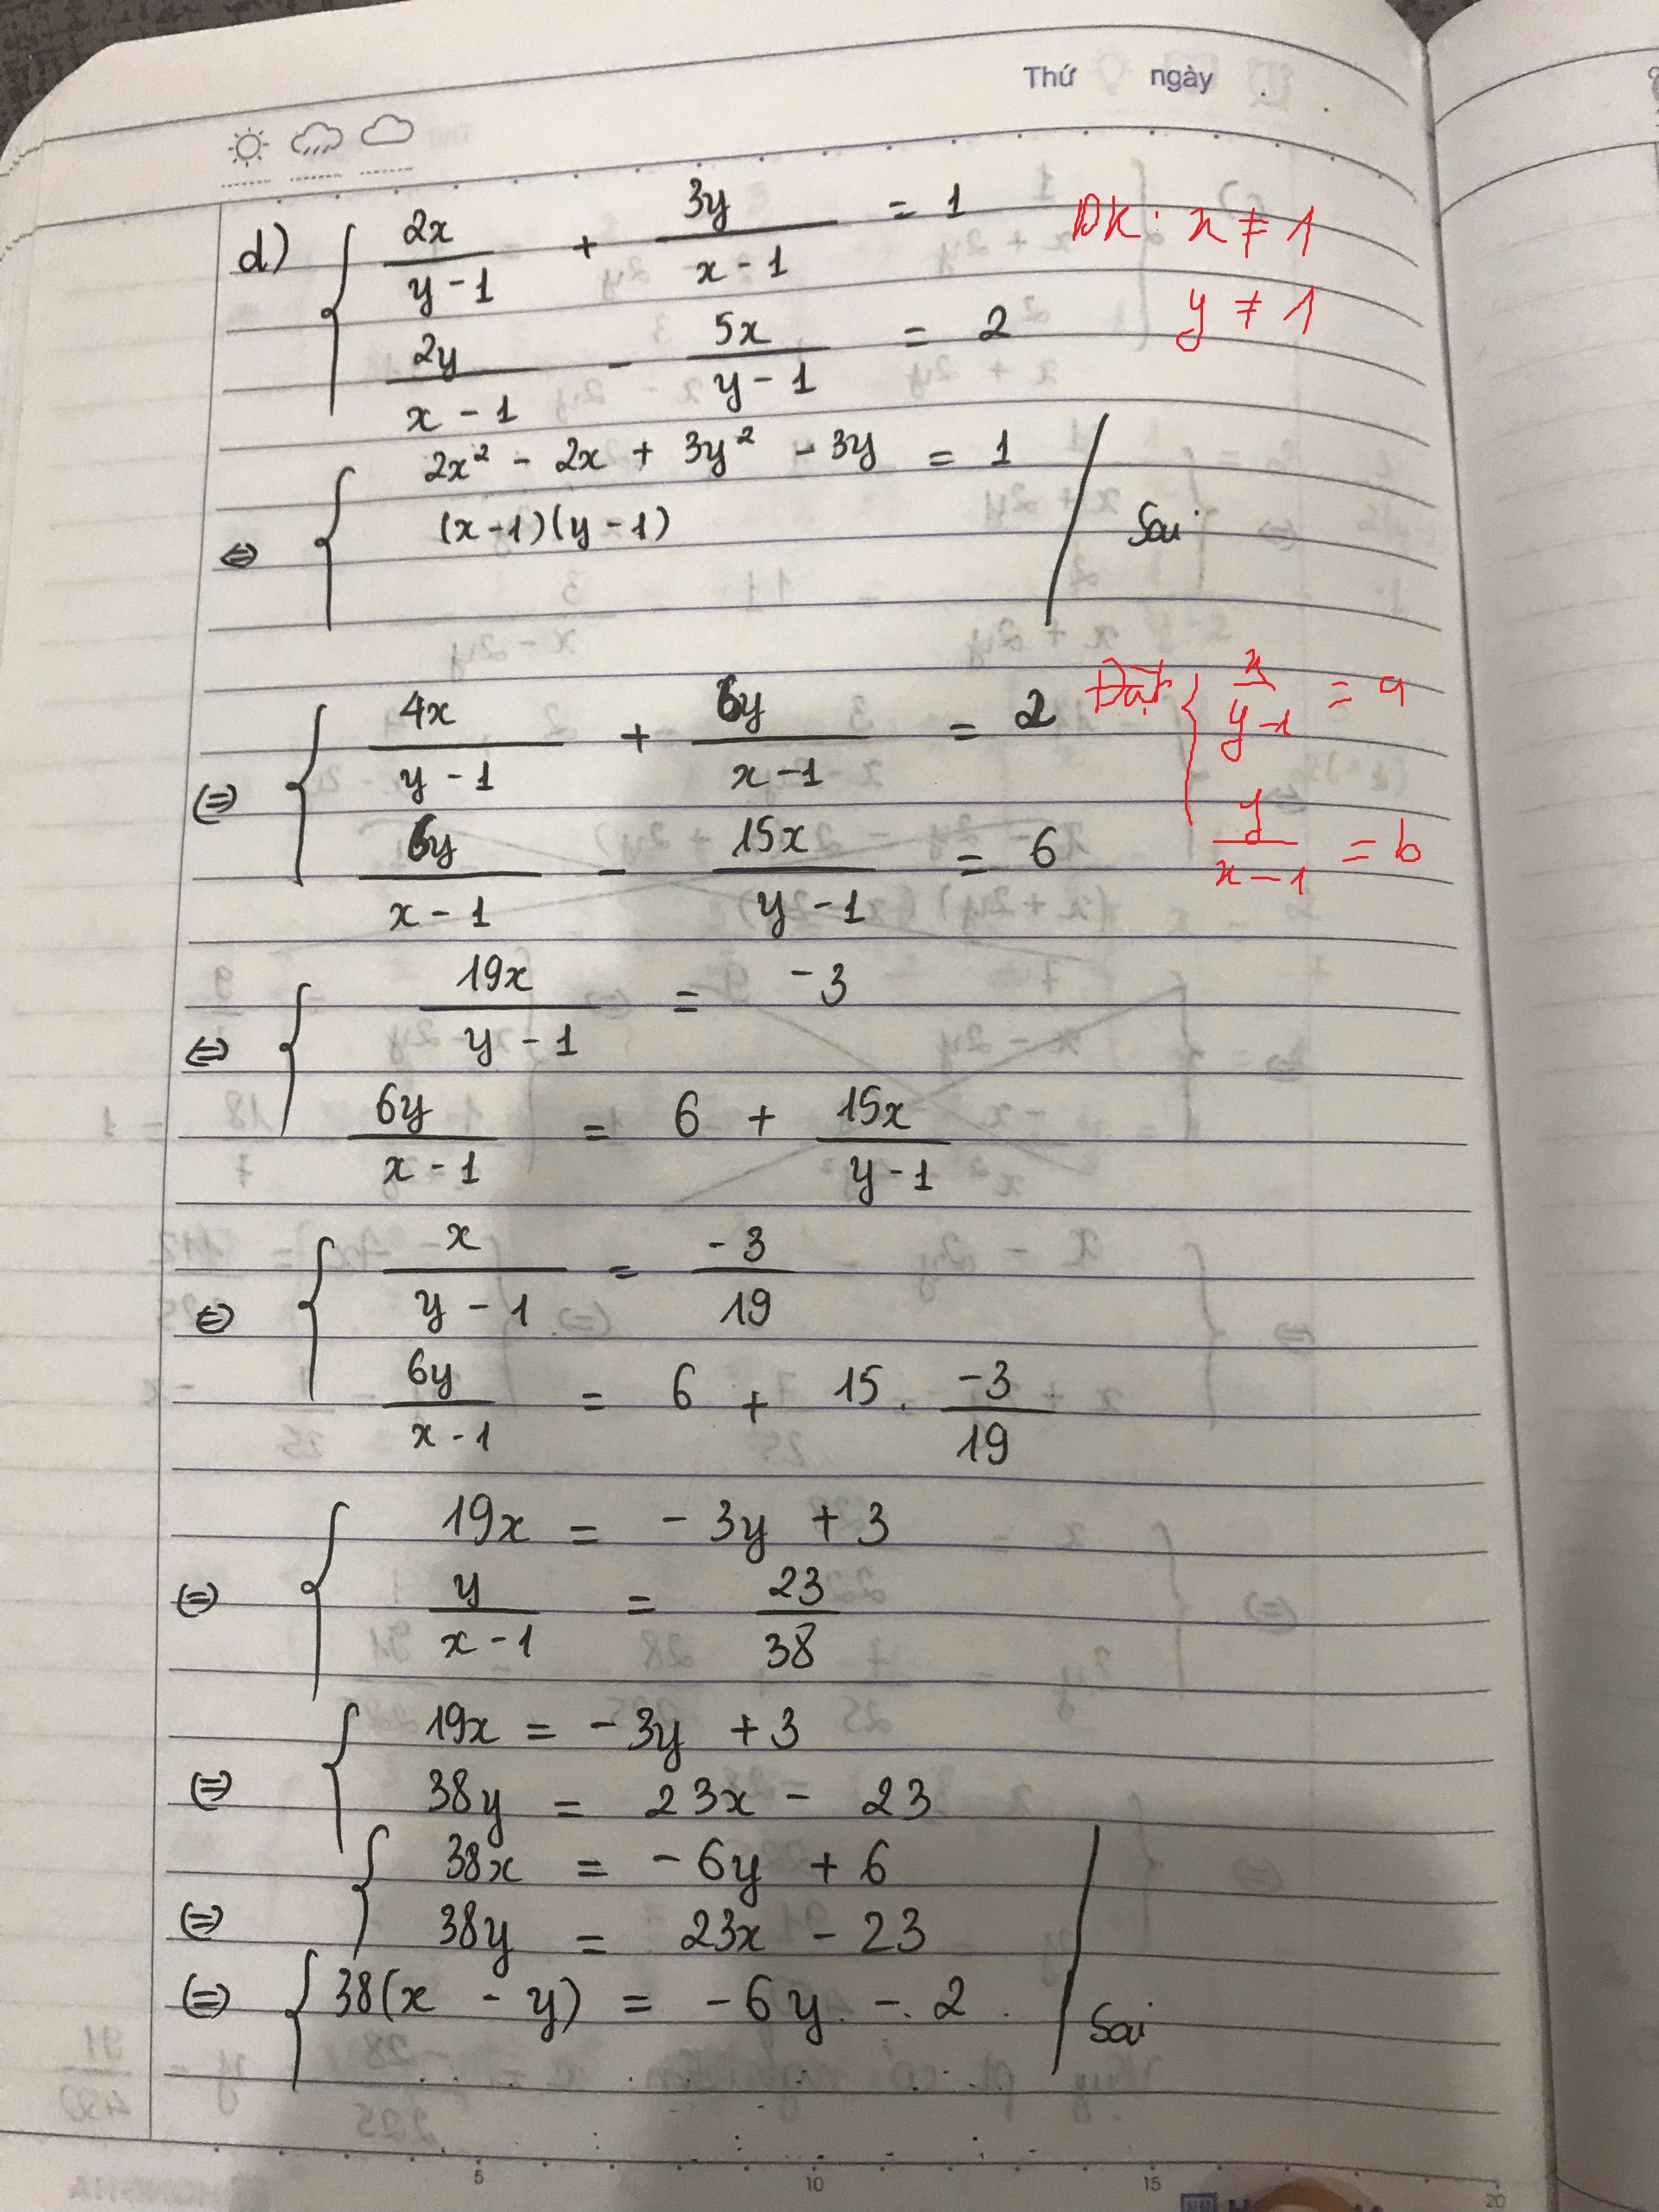 Thứ ngày
d) { 2x/(y - 1) + 3y/(x - 1) = 1 ĐK: x ≠ 1
y ≠ 1
2y/(x - 1) - 5x/(y - 1) = 2
⇔ { 2x² - 2x + 3y² - 3y = 1
(x - 1)(y - 1) Sai
⇔ { 4x/(y - 1) + 6y/(x - 1) = 2 Đặt { x/(y - 1) = a
6y/(x - 1) - 15x/(y - 1) = 6 y/(x - 1) = b
⇔ { 19x/(y - 1) = -3
6y/(x - 1) = 6 + 15x/(y - 1)
⇔ { x/(y - 1) = -3/19
6y/(x - 1) = 6 + 15 . -3/19
⇔ { 19x = -3y + 3
y/(x - 1) = 23/38
⇔ { 19x = -3y + 3
38y = 23x - 23
⇔ { 38x = -6y + 6
38y = 23x - 23
⇔ { 38(x - y) = -6y - 2 Sai
5 10 15 20